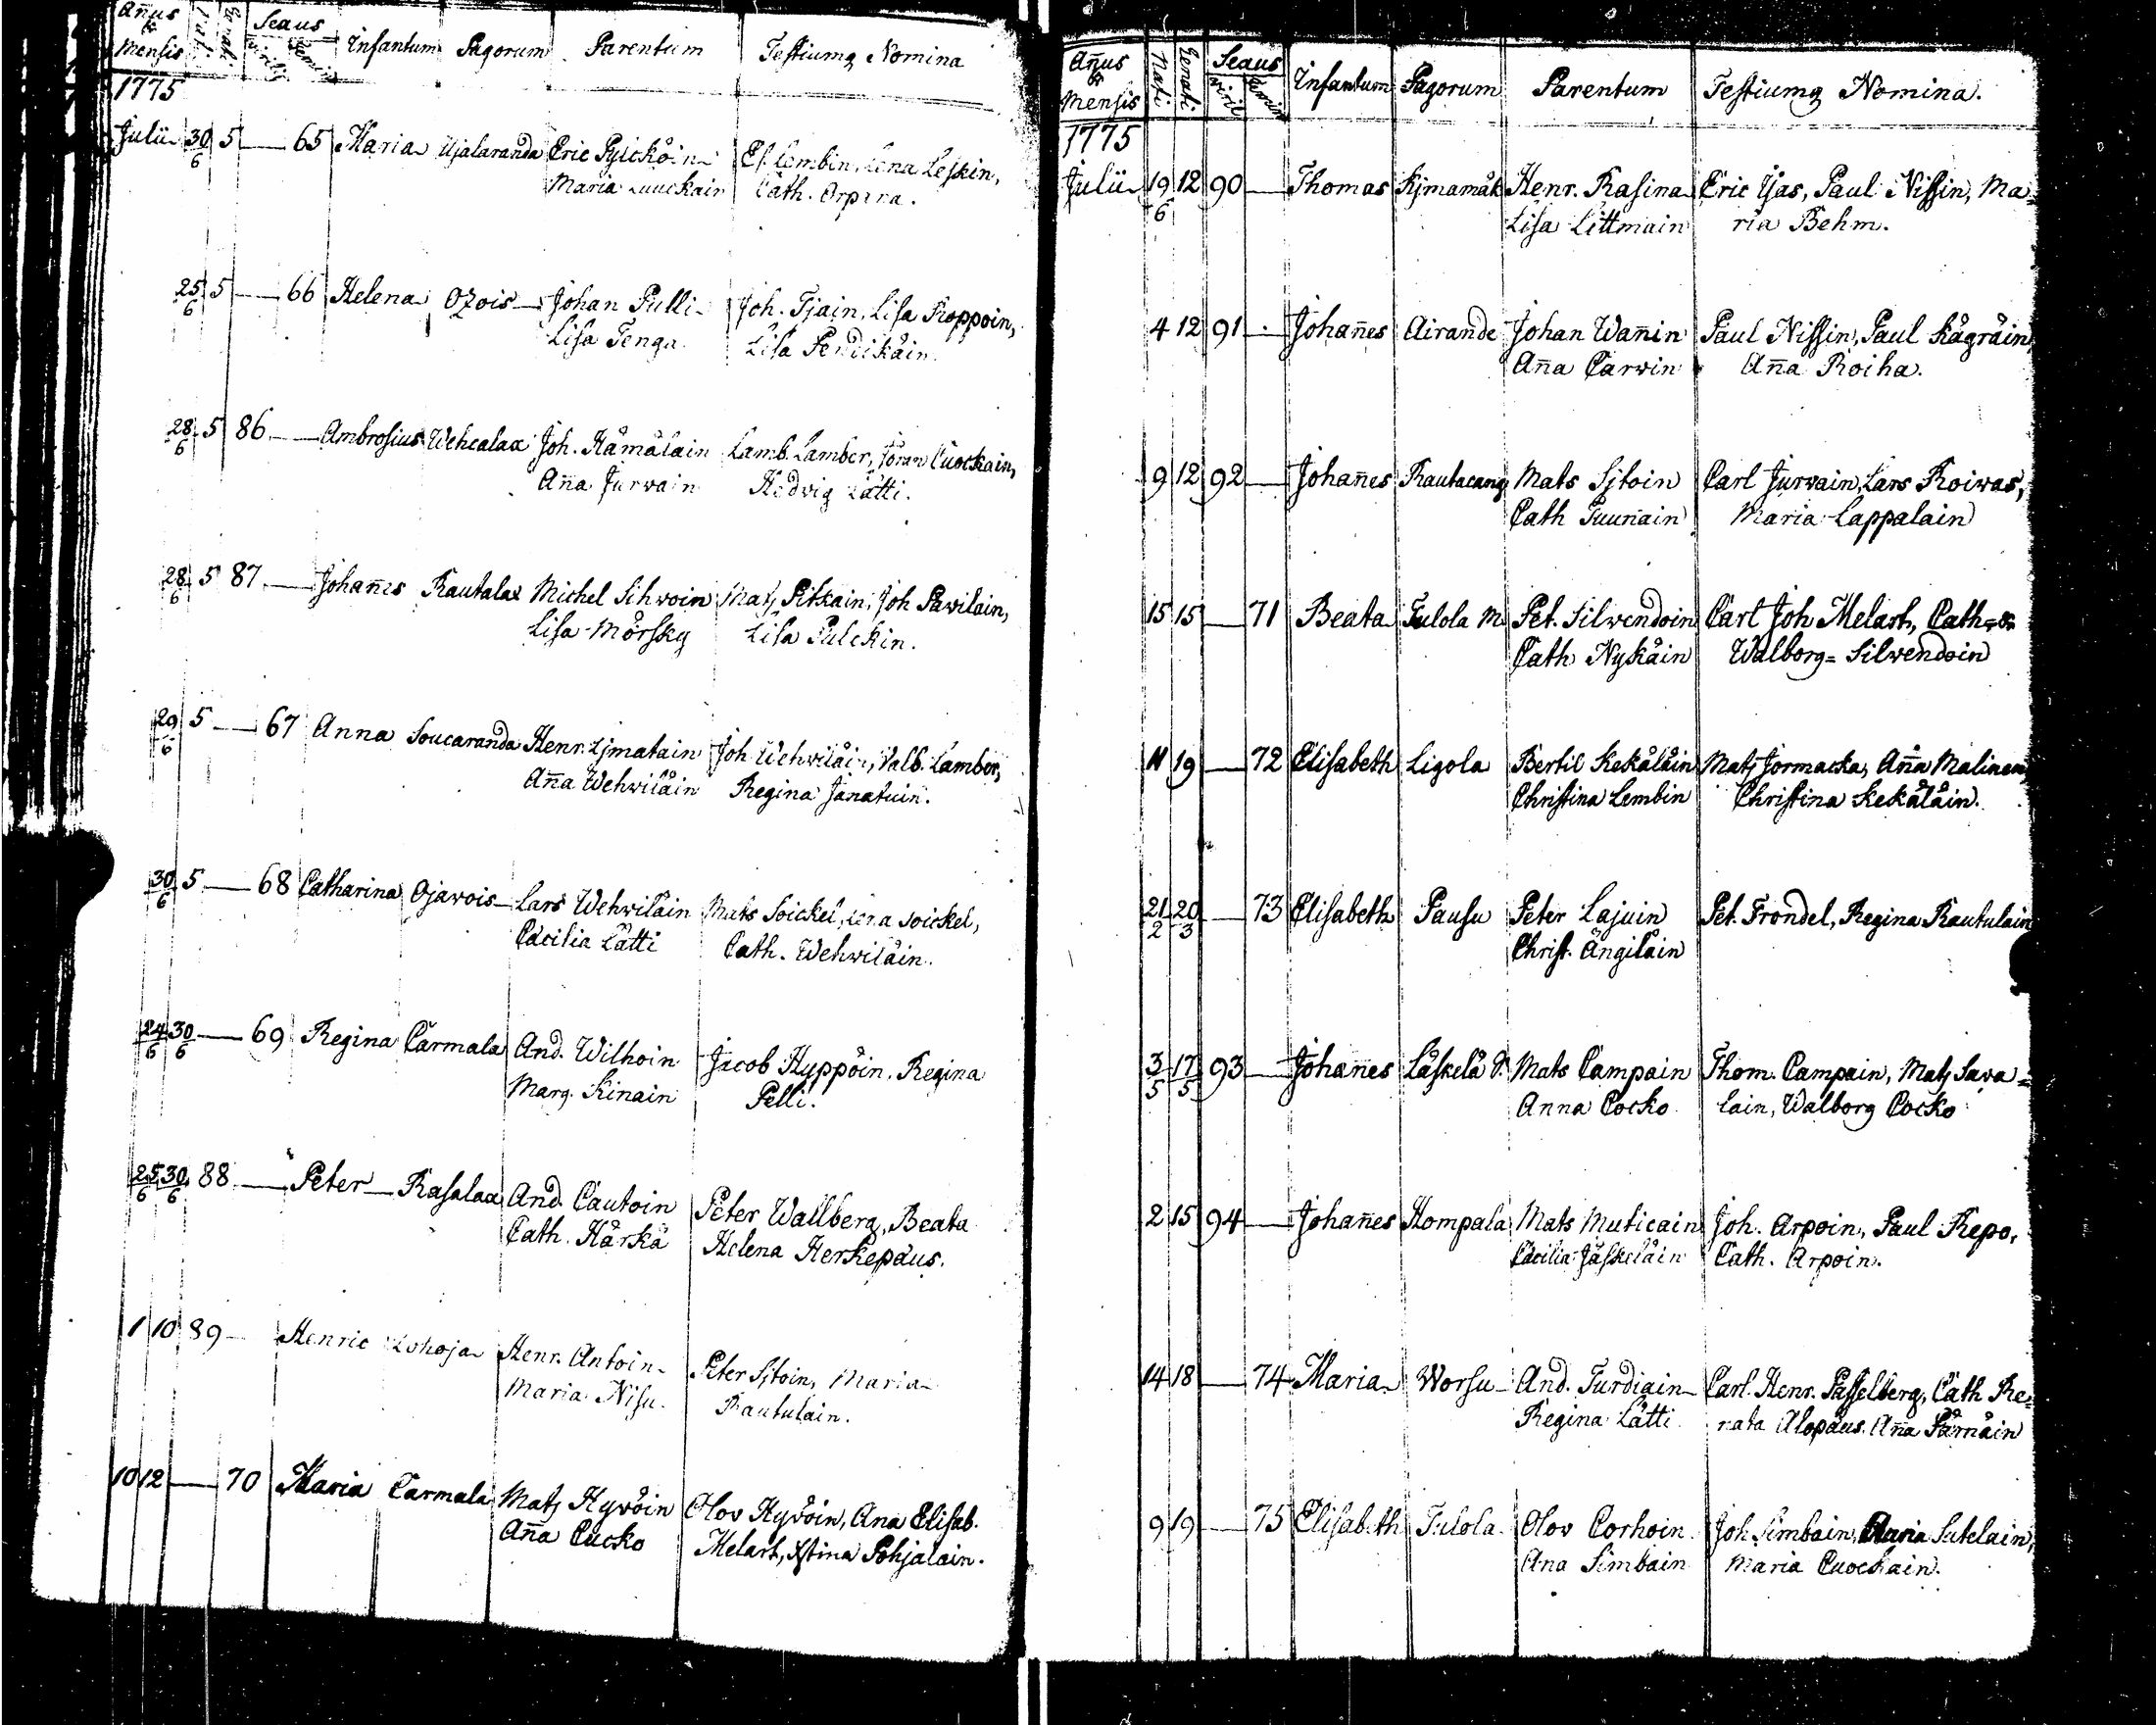 Añus
&
Mensis
Nati
Renati
Sexus
virilis
Infantum Pagorum Parentum Testiumq Nomina
1775
Julii 30/6 5 — 65 Maria Ujalaranda Eric Pylcköin
Maria Luuckain
Lembin, Lena Leskin,
Cath.
25/6 5 — 66 Helena Ozois Johan Pulli Joh. Tjain, Lisa Roppoin,
Lisa Tenga Lisa Pendikäin
28/6 5 86 — Ambrosius Wehcalax Joh. Hämäläin Lamb. Lamber, Cuockain,
Aña Jurvain Hedvig Lätti.
28/6 5 87 — Johañes Rautalax Michel Sihvoin Mats Pitkain, Joh Pavilain,
Lisa Mörsky Lisa Pulckin.
29/6 5 — 67 Anna Soucaranda Henr. Ijmatain Joh Wehviläin, Valb. Lamber,
Aña Wehviläin Regina Janatuin.
30/6 5 — 68 Catharina Ojavois Lars Wehviläin Mats Soickel, Lena Soickel,
Cäcilia Lätti Cath. Wehviläin.
24/6 30/6 — 69 Regina Carmala And. Wilhoin Jacob Hyppöin, Regina
Marg. Kinain Pelli.
25/6 30/6 88 — Peter Rasalax And. Cautoin Peter Wallberg, Beata
Cath. Härkä Helena Herkepäus.
1 10 89 — Henric Lohoja Henr. Antoin Peter Sjtoin, Maria
Maria Nisu. Rautulain.
10 12 — 70 Maria Carmala Mats Hyvöin Olov Hyvöin, Ana Elisab.
Aña Cucko Melart, Xstina Pohjalain.
Añus
&
Mensis
Nati
Renati
Sexus
viril
Infantum Pagorum Parentum Testiumq Nomina.
1775
Julii 19/6 12 90 — Thomas Kjmamäk Henr. Rasina Eric Ijas, Paul Nissin, Ma=
Lisa Littmain ria Behm.
4 12 91 Johañes Airande Johan Wañin Paul Nissin, Paul Kägräin,
Aña Carvin Aña Roiha.
9 12 92 — Johañes Rautacang Mats Sjtoin Carl Jurvain, Lars Roivas,
Cath Tuunain Maria Lappalain
15 15 — 71 Beata Tulola M. Pet. Silvendoin Carl Joh Melart, Cath= &
Cath Nykäin Walborg= Silvendoin
11 19 — 72 Elisabeth Ligola Bertil Kekäläin Mats Jormacka, Aña Malinen
Christina Lembin Christina Kekäläin.
21/2 20/3 — 73 Elisabeth Pausu Peter Lajuin Pet. Trondel, Regina Rautulain
Christ. Ängiläin
3/5 17/5 93 — Johañes Läskelä Mats Campain Thom. Campain, Mats Sava=
Anna Cocko lain, Walborg Cocko
2 15 94 — Johañes Hompala Mats Muticain Joh. Arpoin, Paul Repo,
Cäcilia Jäskeläin Cath. Arpoin.
14 18 — 74 Maria Worsu And. Turdiain Carl. Henr. Passelberg, Cath Re=
Regina Lätti nata Alopäus. Aña Pärnäin
9 19 — 75 Elisabeth Tulola Olov Corhoin Joh Simbain, Sutelain,
Ana Simbain Maria Cuockain.